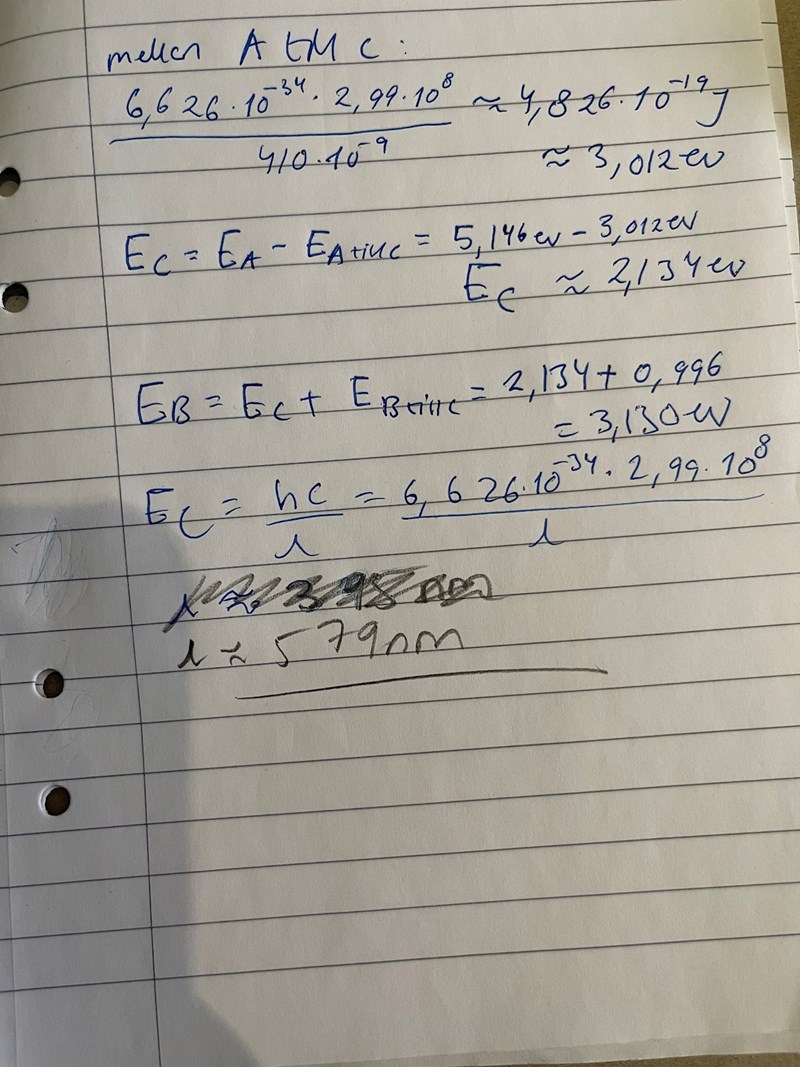 mellan A till C:
6,626·10^-34 · 2,99·10^8 / 410·10^-9 ≈ 4,826·10^-19 J
≈ 3,012 ev
E_C = E_A - E_A till C = 5,146 ev - 3,012 ev
E_C ≈ 2,134 ev
E_B = E_C + E_B till C = 2,134 + 0,996
= 3,130 ev
E_C = hc / λ = 6,626·10^-34 · 2,99·10^8 / λ
λ ≈ 579 nm